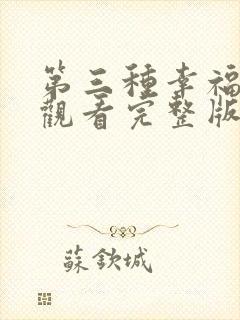 第三種幸福
觀看完整版
蘇欽城